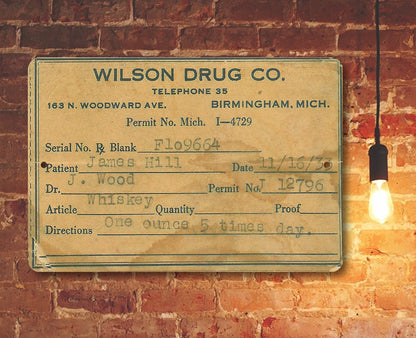 WILSON DRUG CO.
TELEPHONE 35
163 N. WOODWARD AVE. BIRMINGHAM, MICH.
Permit No. Mich. I—4729
Serial No. ℞ Blank Flo9664
Patient James Hill Date 11/16/3
Dr. J. Wood Permit No. J 12796
Article Whiskey Quantity Proof
Directions One ounce 5 times day.